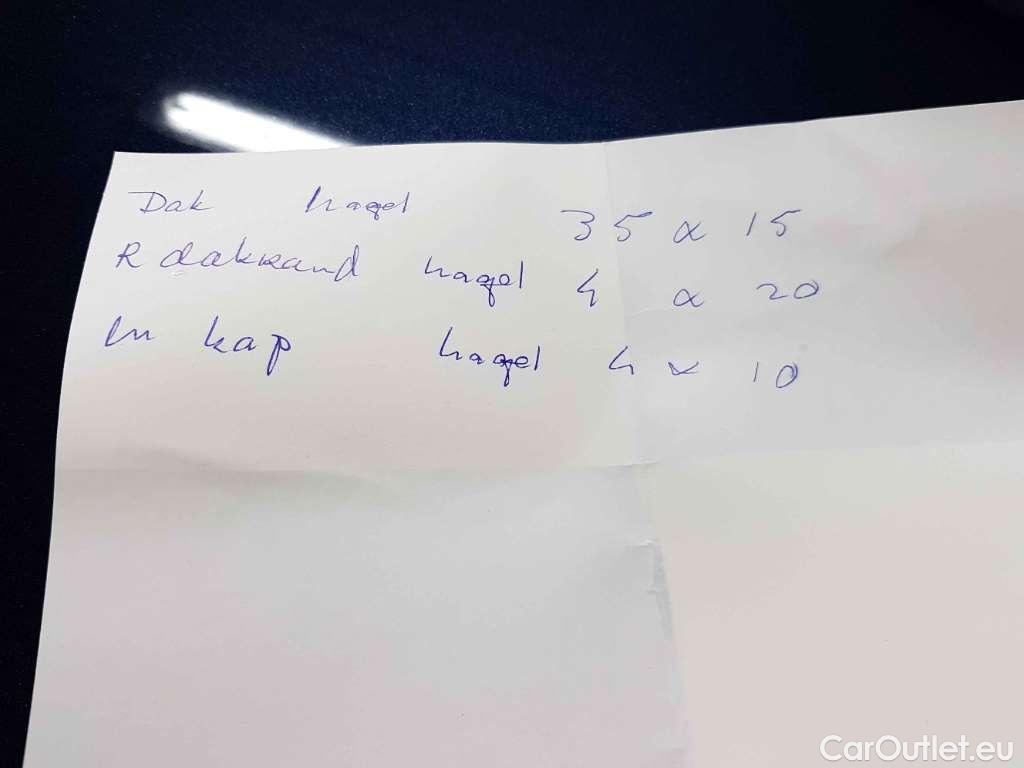 Dak hagel 35 x 15
R dakrand hagel 4 x 20
M kap hagel 4 x 10
CarOutlet.eu